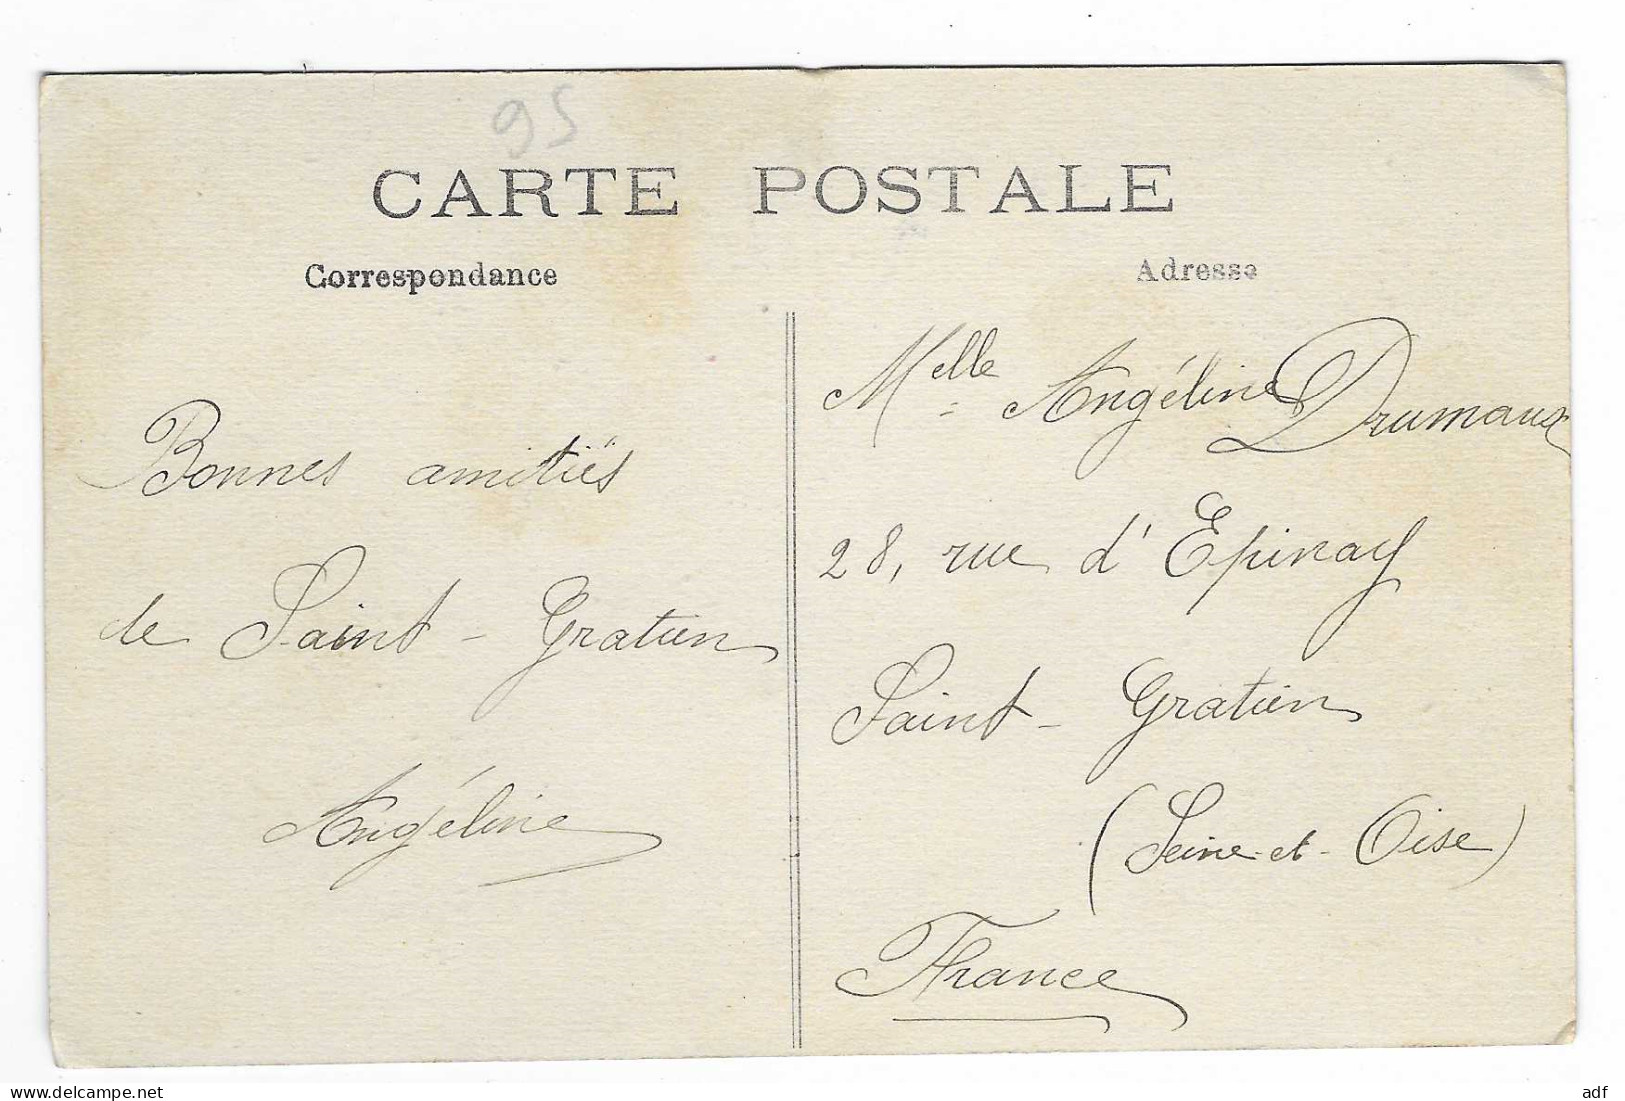 95
CARTE POSTALE
Correspondance
Adresse
Bonnes amitiés
de Saint-Gratien
Angéline
Melle Angéline Drumaux
28, rue d'Epinay
Saint-Gratien
(Seine-et-Oise)
France
adf